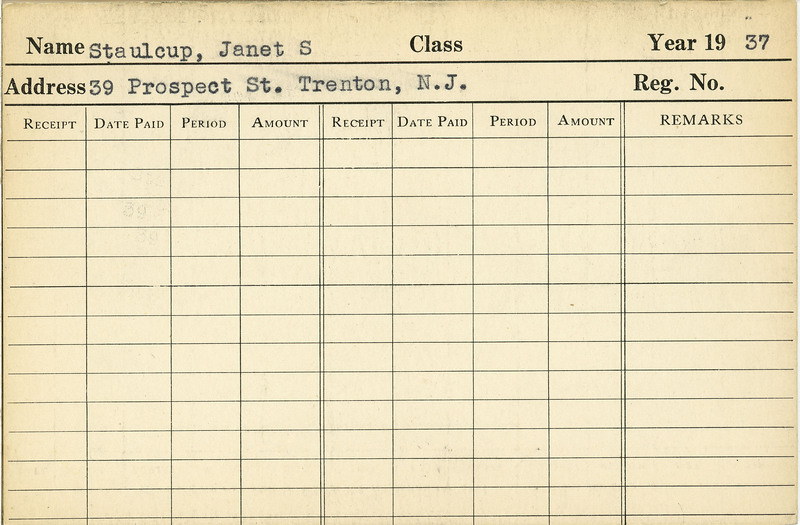 Name Staulcup, Janet S Class Year 19 37
Address 39 Prospect St. Trenton, N.J. Reg. No.
RECEIPT DATE PAID PERIOD AMOUNT RECEIPT DATE PAID PERIOD AMOUNT REMARKS
39
39